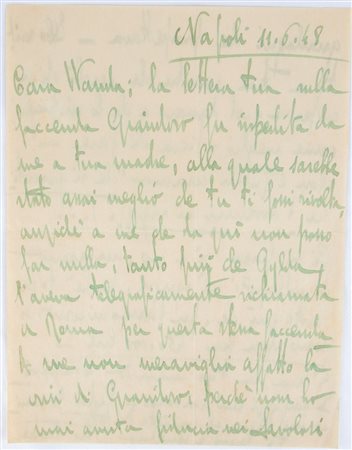 Napoli 11.6.48
Cara Wanda, la lettera tua sulla
faccenda Graindoro fu inpedita da
me a tua madre, alla quale sarebbe
stato assai meglio che tu ti fossi rivolta,
anziché a me che da qui non posso
far nulla, tanto più che
l'aveva telegraficamente richiamata
a Roma per questa stessa faccenda
A me non meraviglia affatto la
crisi di perchè non ho
mai avuta fiducia nei